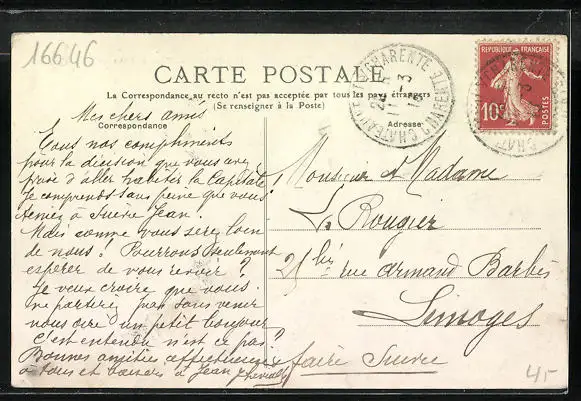 16646
CARTE POSTALE
La Correspondance au recto n'est pas acceptée par tous les pays étrangers
(Se renseigner à la Poste)
Correspondance
Mes chers amis
Tous nos compliments
pour la décision que vous avez
prise d'aller habiter la Capitale
Je comprends sans peine que vous
teniez à suivre Jean.
Mais comme vous serez loin
de nous! Pourrons seulement
espérer de vous revoir?
Je veux croire que nous
ne partirez pas sans venir
nous dire un petit bonjour
C'est entendu n'est ce pas?
Bonnes amitiés affectueuses
à tous et baisers à Jean
Adresse
Monsieur et Madame
L. Rougier
21 bis rue Armand Barbès
Limoges
faire suivre
REPUBLIQUE FRANÇAISE
10c
POSTES
CHARENTE
4,-